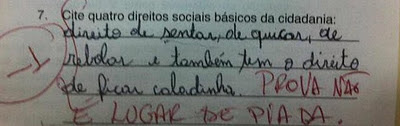 7. Cite quatro direitos sociais básicos da cidadania:
direito de sentar, de quicar, de
rebolar e também tem o direito
de ficar caladinha. PROVA NÃO
É LUGAR DE PIADA.